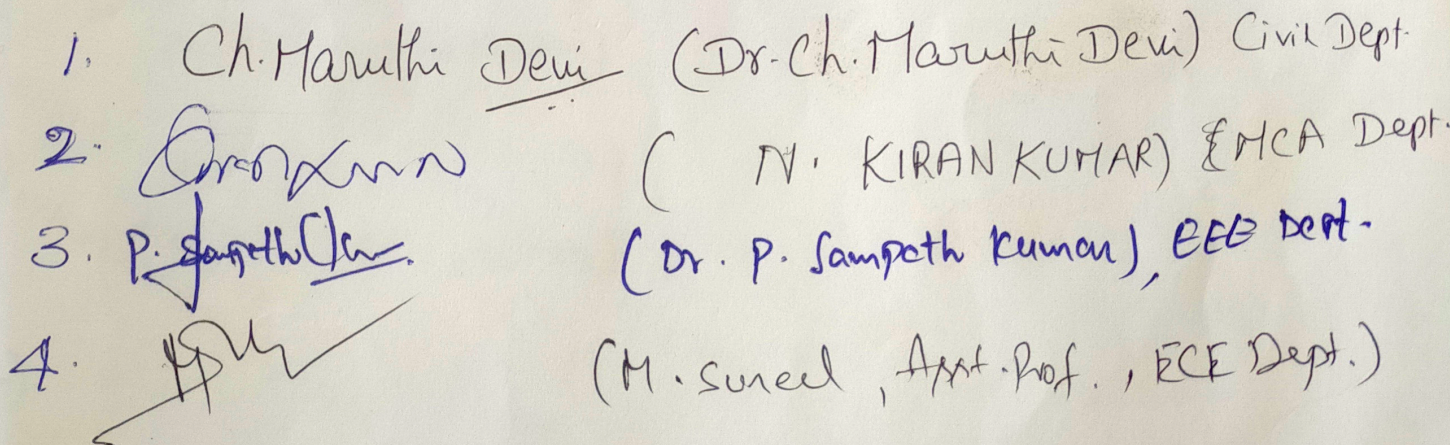 1. Ch. Maruthi Devi (Dr. Ch. Maruthi Devi) Civil Dept.
2. ( N. KIRAN KUMAR) MCA Dept.
3. P. Sampath (Dr. P. Sampath Kumar), EEE Dept.
4. (M. Suneel, Asst. Prof., ECE Dept.)